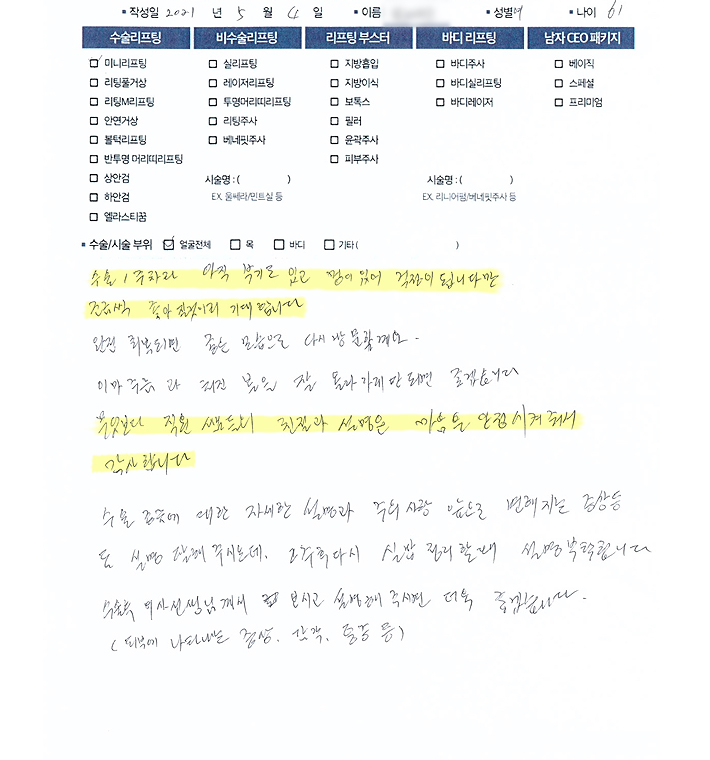 ▪ 작성일 2021 년 5 월 4 일 ▪ 이름 ▪ 성별 여 ▪ 나이 61
수술리프팅 비수술리프팅 리프팅 부스터 바디 리프팅 남자 CEO 패키지
미니리프팅 실리프팅 지방흡입 바디주사 베이직
리팅풀거상 레이저리프팅 지방이식 바디실리프팅 스페셜
리팅M리프팅 투명머리띠리프팅 보톡스 바디레이저 프리미엄
안면거상 리팅주사 필러
볼턱리프팅 베네핏주사 윤곽주사
반투명 머리띠리프팅 피부주사
상안검 시술명 : ( ) 시술명 : ( )
하안검 EX. 울쎄라/민트실 등 EX. 리니어펌/베네핏주사 등
엘라스티꿈
▪ 수술/시술 부위 얼굴전체 목 바디 기타 ( )
수술 1주차라 아직 붓기도 있고 멍이 있어 걱정이 됩니다만
조금씩 좋아질것이라 기대합니다
완전 회복되면 좋은 모습으로 다시 방문할께요.
이마주름과 처진 볼은 잘 올라가게만 되면 좋겠습니다
무엇보다 직원 쌤들의 친절과 설명은 마음을 안정시켜줘서
감사합니다
수술 종목에 대한 자세한 설명과 주의사항 앞으로 변해지는 증상등
도 설명 잘해 주시는데, 2주후 다시 실밥 정리할때 설명부탁합니다
수술후 의사선생님께서 보시고 설명해 주시면 더욱 좋겠습니다.
(피부에 나타나는 증상, 감각, 통증 등)